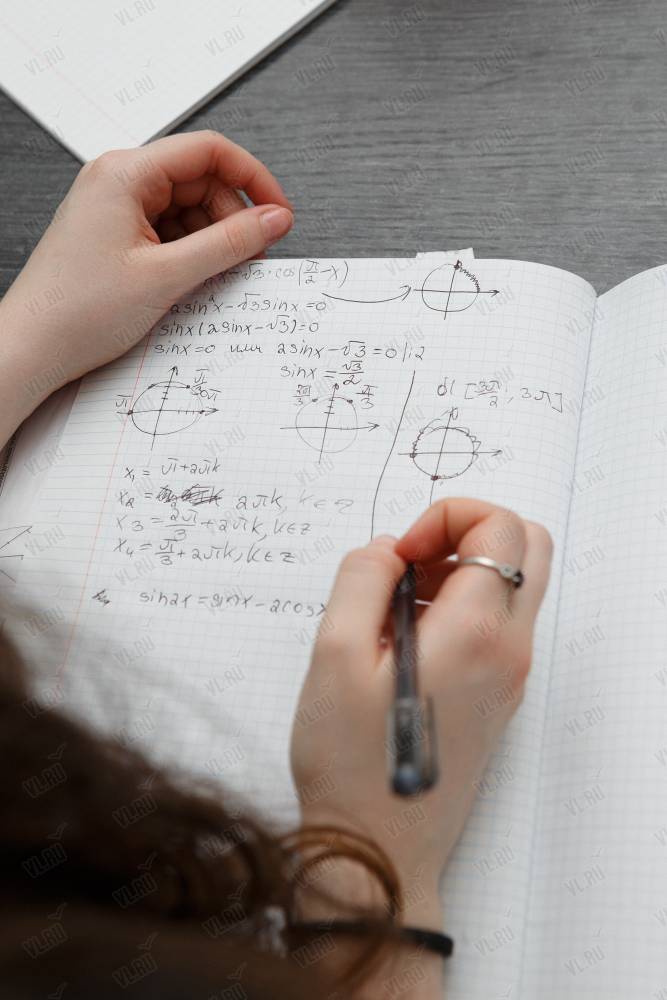 x-√3·cos(π/2-x)
2sin²x-√3sinx=0
sinx(2sinx-√3)=0
sinx=0 или 2sinx-√3=0|:2
sinx=√3/2
б) [3π/2; 3π]
π π/3 0π
2π/3 π/3
x₁= π+2πk
x₂= 2πk, k∈z
x₃=2π/3+2πk, k∈z
x₄=π/3+2πk, k∈z
sin2x=sinx-2cosx
VL.RU